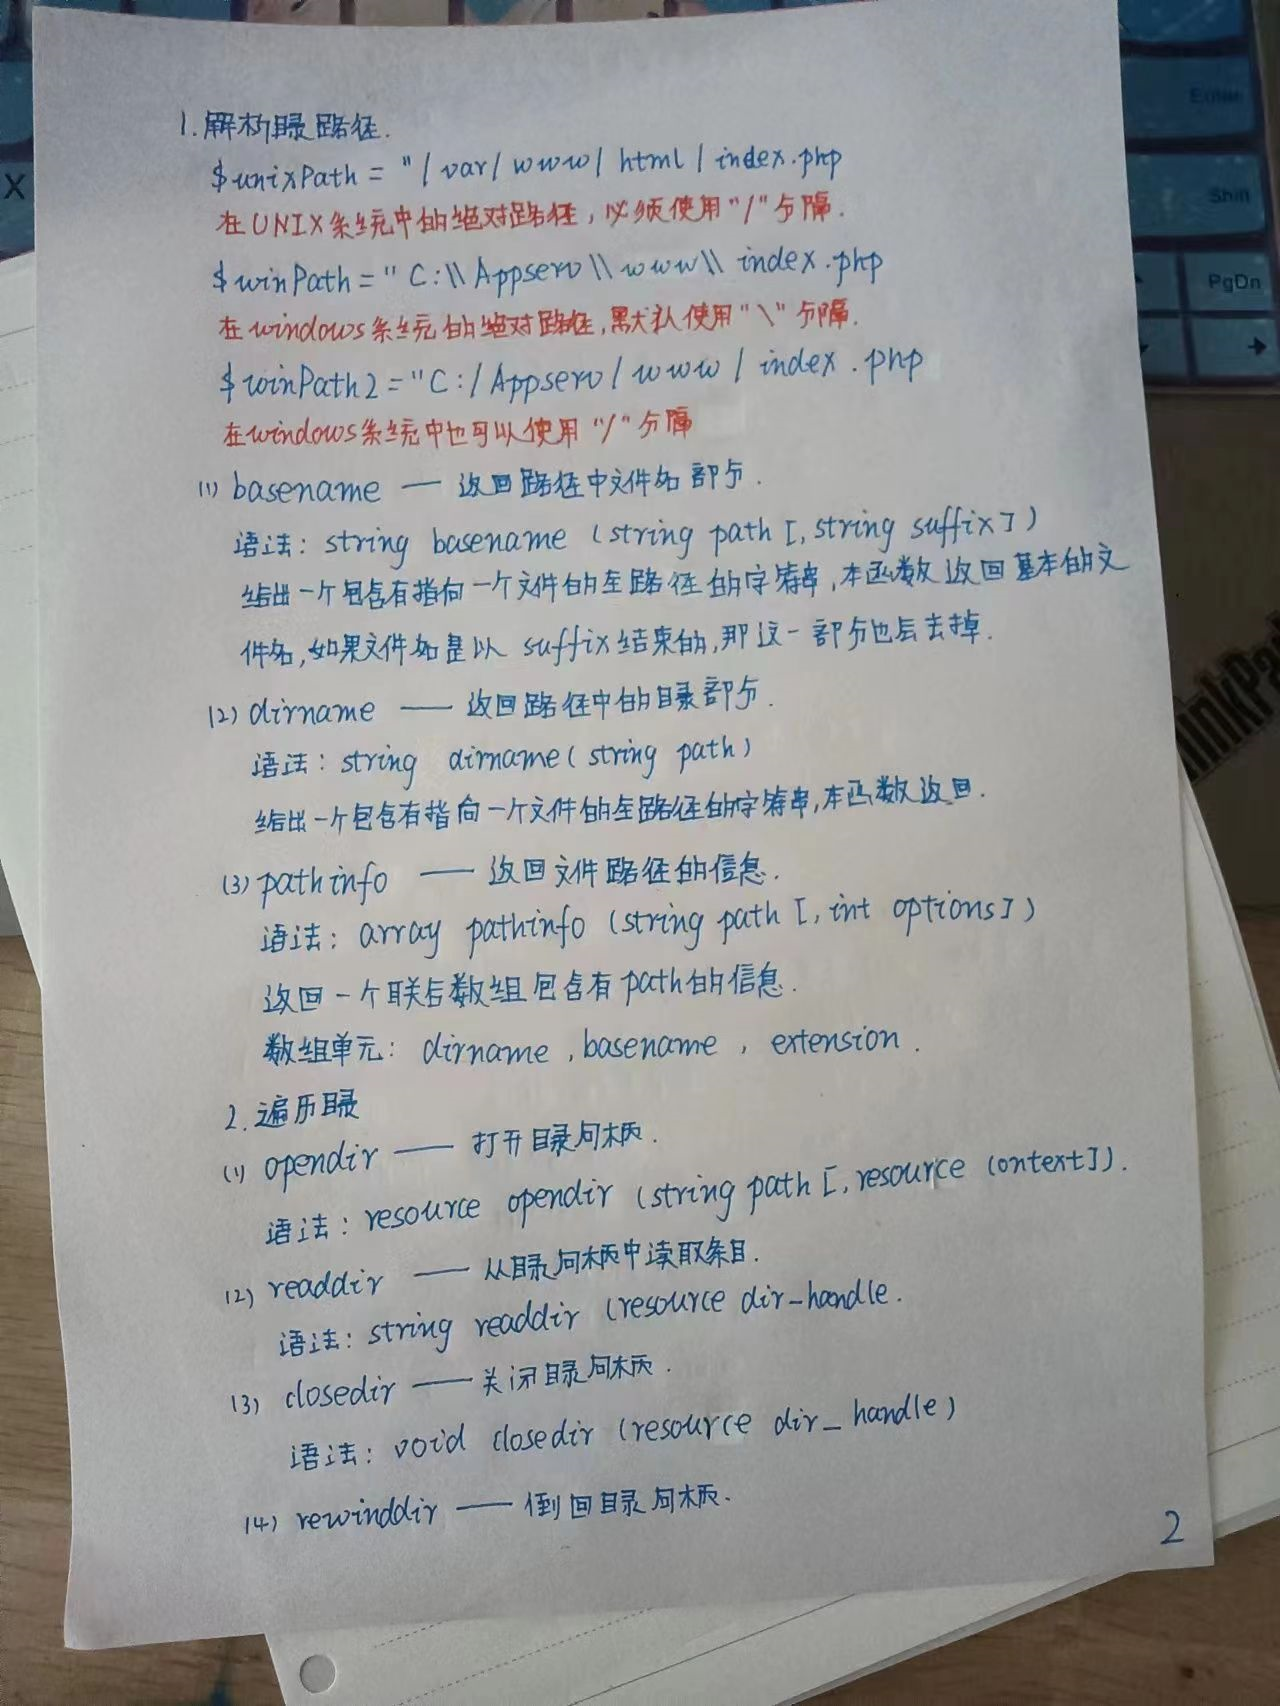 1.解析目录路径.
$unixPath = "/var/www/html/index.php
在UNIX系统中的绝对路径，必须使用"/"分隔.
$winPath = "C:\\Appserv\\www\\index.php
在windows系统的绝对路径,默认使用"\"分隔.
$winPath2 = "C:/Appserv/www/index.php
在windows系统中也可以使用"/"分隔
(1) basename — 返回路径中文件名部分.
语法: string basename (string path [,string suffix])
给出一个包含有指向一个文件的全路径的字符串,本函数返回基本的文
件名,如果文件名是以 suffix结束的,那这一部分也会去掉.
(2) dirname — 返回路径中的目录部分.
语法: string dirname(string path)
给出一个包含有指向一个文件的全路径的字符串,本函数返回.
(3) pathinfo — 返回文件路径的信息.
语法: array pathinfo (string path [,int options])
返回一个联合数组包含有path的信息.
数组单元: dirname ,basename , extension .
2.遍历目录
(1) opendir — 打开目录句柄.
语法: resource opendir (string path [,resource context]).
(2) readdir — 从目录句柄中读取条目.
语法: string readdir (resource dir_handle.
(3) closedir — 关闭目录句柄.
语法: void closedir (resource dir_handle)
(4) rewinddir — 倒回目录句柄.
2
Enter
X
Shift
PgDn